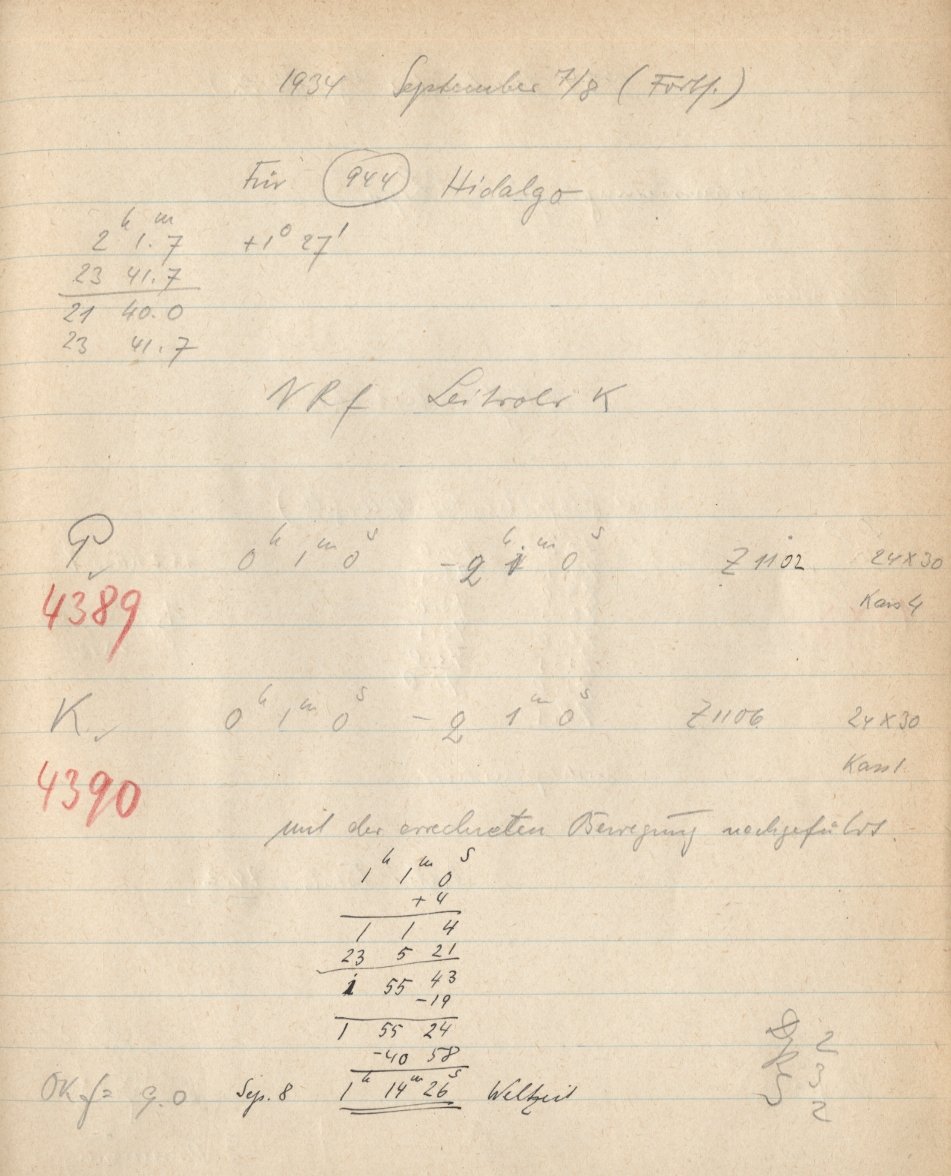 1934 September 7/8 (Forts.)
Für 944 Hidalgo
2h 1m.7 +1° 27'
23 41.7
21 40.0
23 41.7
NRf Leitrohr K
P. 0h 1m 0s - 2h 1m 0s Z 1102 24x30
4389 Kass 4
K. 0h 1m 0s - 2 1m 0s Z 1106 24x30
4390 Kass 1
mit der errechneten Bewegung nachgeführt.
1h 1m 0s
+4
1 1 4
23 5 21
1 55 43
-19
1 55 24
-40 58
OK f= 9.0 Sep. 8 1h 14m 26s Weltzeit
2
3
2